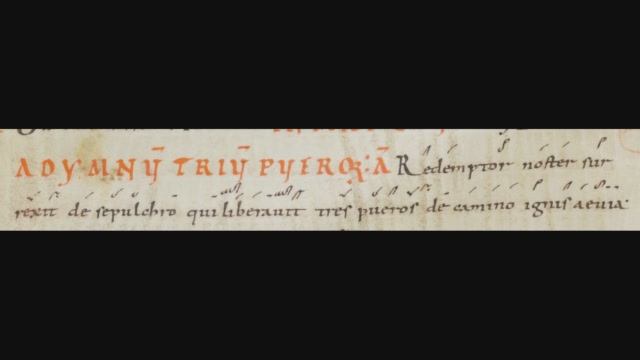 AD YMNŪ TRIŪ PUEROꝜ: Ā Redemptor noster sur
rexit de sepulchro qui liberavit tres pueros de camino ignis aevia